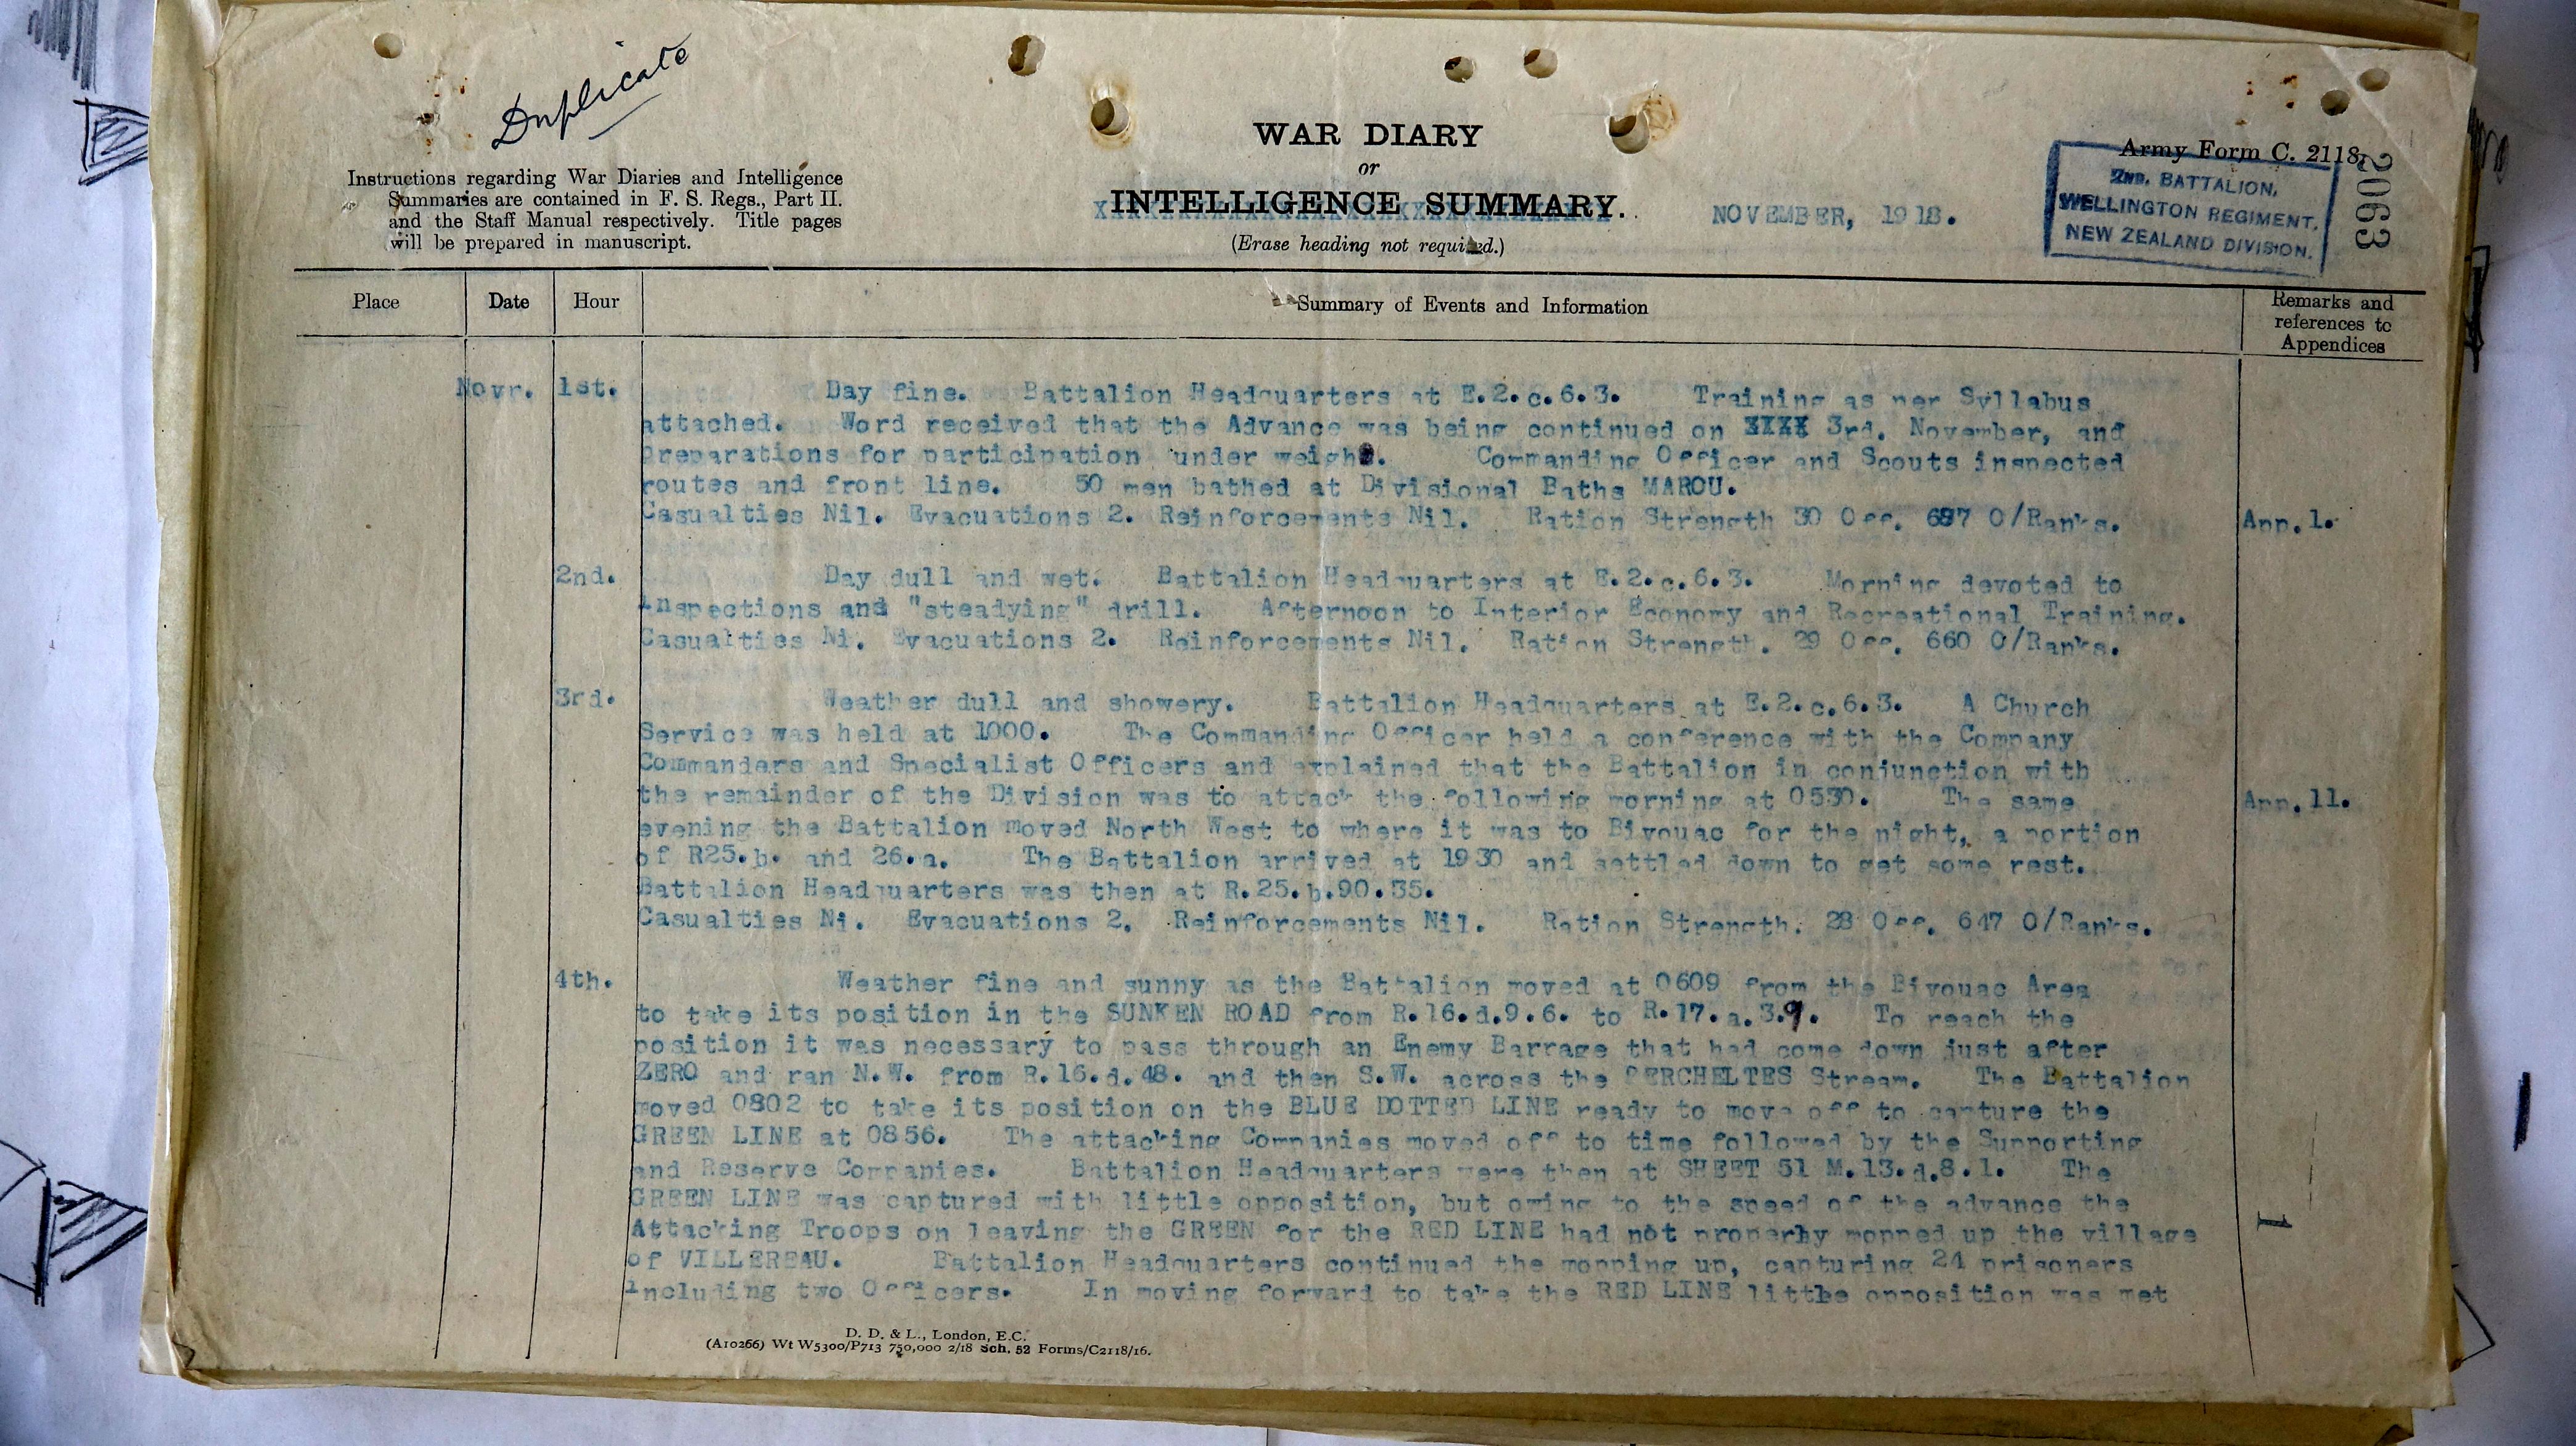 Duplicate
Instructions regarding War Diaries and Intelligence
Summaries are contained in F. S. Regs., Part II.
and the Staff Manual respectively. Title pages
will be prepared in manuscript.
WAR DIARY
or
INTELLIGENCE SUMMARY.
(Erase heading not required.)
NOVEMBER, 1918.
Army Form C. 2118.
2ND. BATTALION,
WELLINGTON REGIMENT,
NEW ZEALAND DIVISION.
2063
Place Date Hour Summary of Events and Information Remarks and
references to
Appendices
Novr. 1st. Day fine. Battalion Headquarters at E.2.c.6.3. Training as per Syllabus
attached. Word received that the Advance was being continued on XXXX 3rd. November, and
preparations for participation under weigh. Commanding Officer and Scouts inspected
routes and front line. 50 men bathed at Divisional Baths MAROU.
Casualties Nil. Evacuations 2. Reinforcements Nil. Ration Strength 30 Off. 687 O/Ranks. App.1.
2nd. Day dull and wet. Battalion Headquarters at E.2.c.6.3. Morning devoted to
inspections and "steadying" drill. Afternoon to Interior Economy and Recreational Training.
Casualties Ni. Evacuations 2. Reinforcements Nil. Ration Strength. 29 Off. 660 O/Ranks.
3rd. Weather dull and showery. Battalion Headquarters at E.2.c.6.3. A Church
Service was held at 1000. The Commanding Officer held a conference with the Company
Commanders and Specialist Officers and explained that the Battalion in conjunction with
the remainder of the Division was to attack the following morning at 0530. The same App.11.
evening the Battalion moved North West to where it was to Bivouac for the night, a portion
of R25.b. and 26.a. The Battalion arrived at 1930 and settled down to get some rest.
Battalion Headquarters was then at R.25.b.90.35.
Casualties Ni. Evacuations 2. Reinforcements Nil. Ration Strength. 28 Off. 647 O/Ranks.
4th. Weather fine and sunny as the Battalion moved at 0609 from the Bivouac Area
to take its position in the SUNKEN ROAD from R.16.d.9.6. to R.17.a.3.9. To reach the
position it was necessary to pass through an Enemy Barrage that had come down just after
ZERO and ran N.W. from R.16.d.48. and then S.W. across the PERCHELTES Stream. The Battalion
moved 0802 to take its position on the BLUE DOTTED LINE ready to move off to capture the
GREEN LINE at 0856. The attacking Companies moved off to time followed by the Supporting
and Reserve Companies. Battalion Headquarters were then at SHEET 51 M.13.d.8.1. The
GREEN LINE was captured with little opposition, but owing to the speed of the advance the
Attacking Troops on leaving the GREEN for the RED LINE had not properly mopped up the village
of VILLEREAU. Battalion Headquarters continued the mopping up, capturing 24 prisoners
including two Officers. In moving forward to take the RED LINE little opposition was met
1
D. D. & L., London, E.C.
(A10266) Wt W5300/P713 750,000 2/18 Sch. 52 Forms/C2118/16.